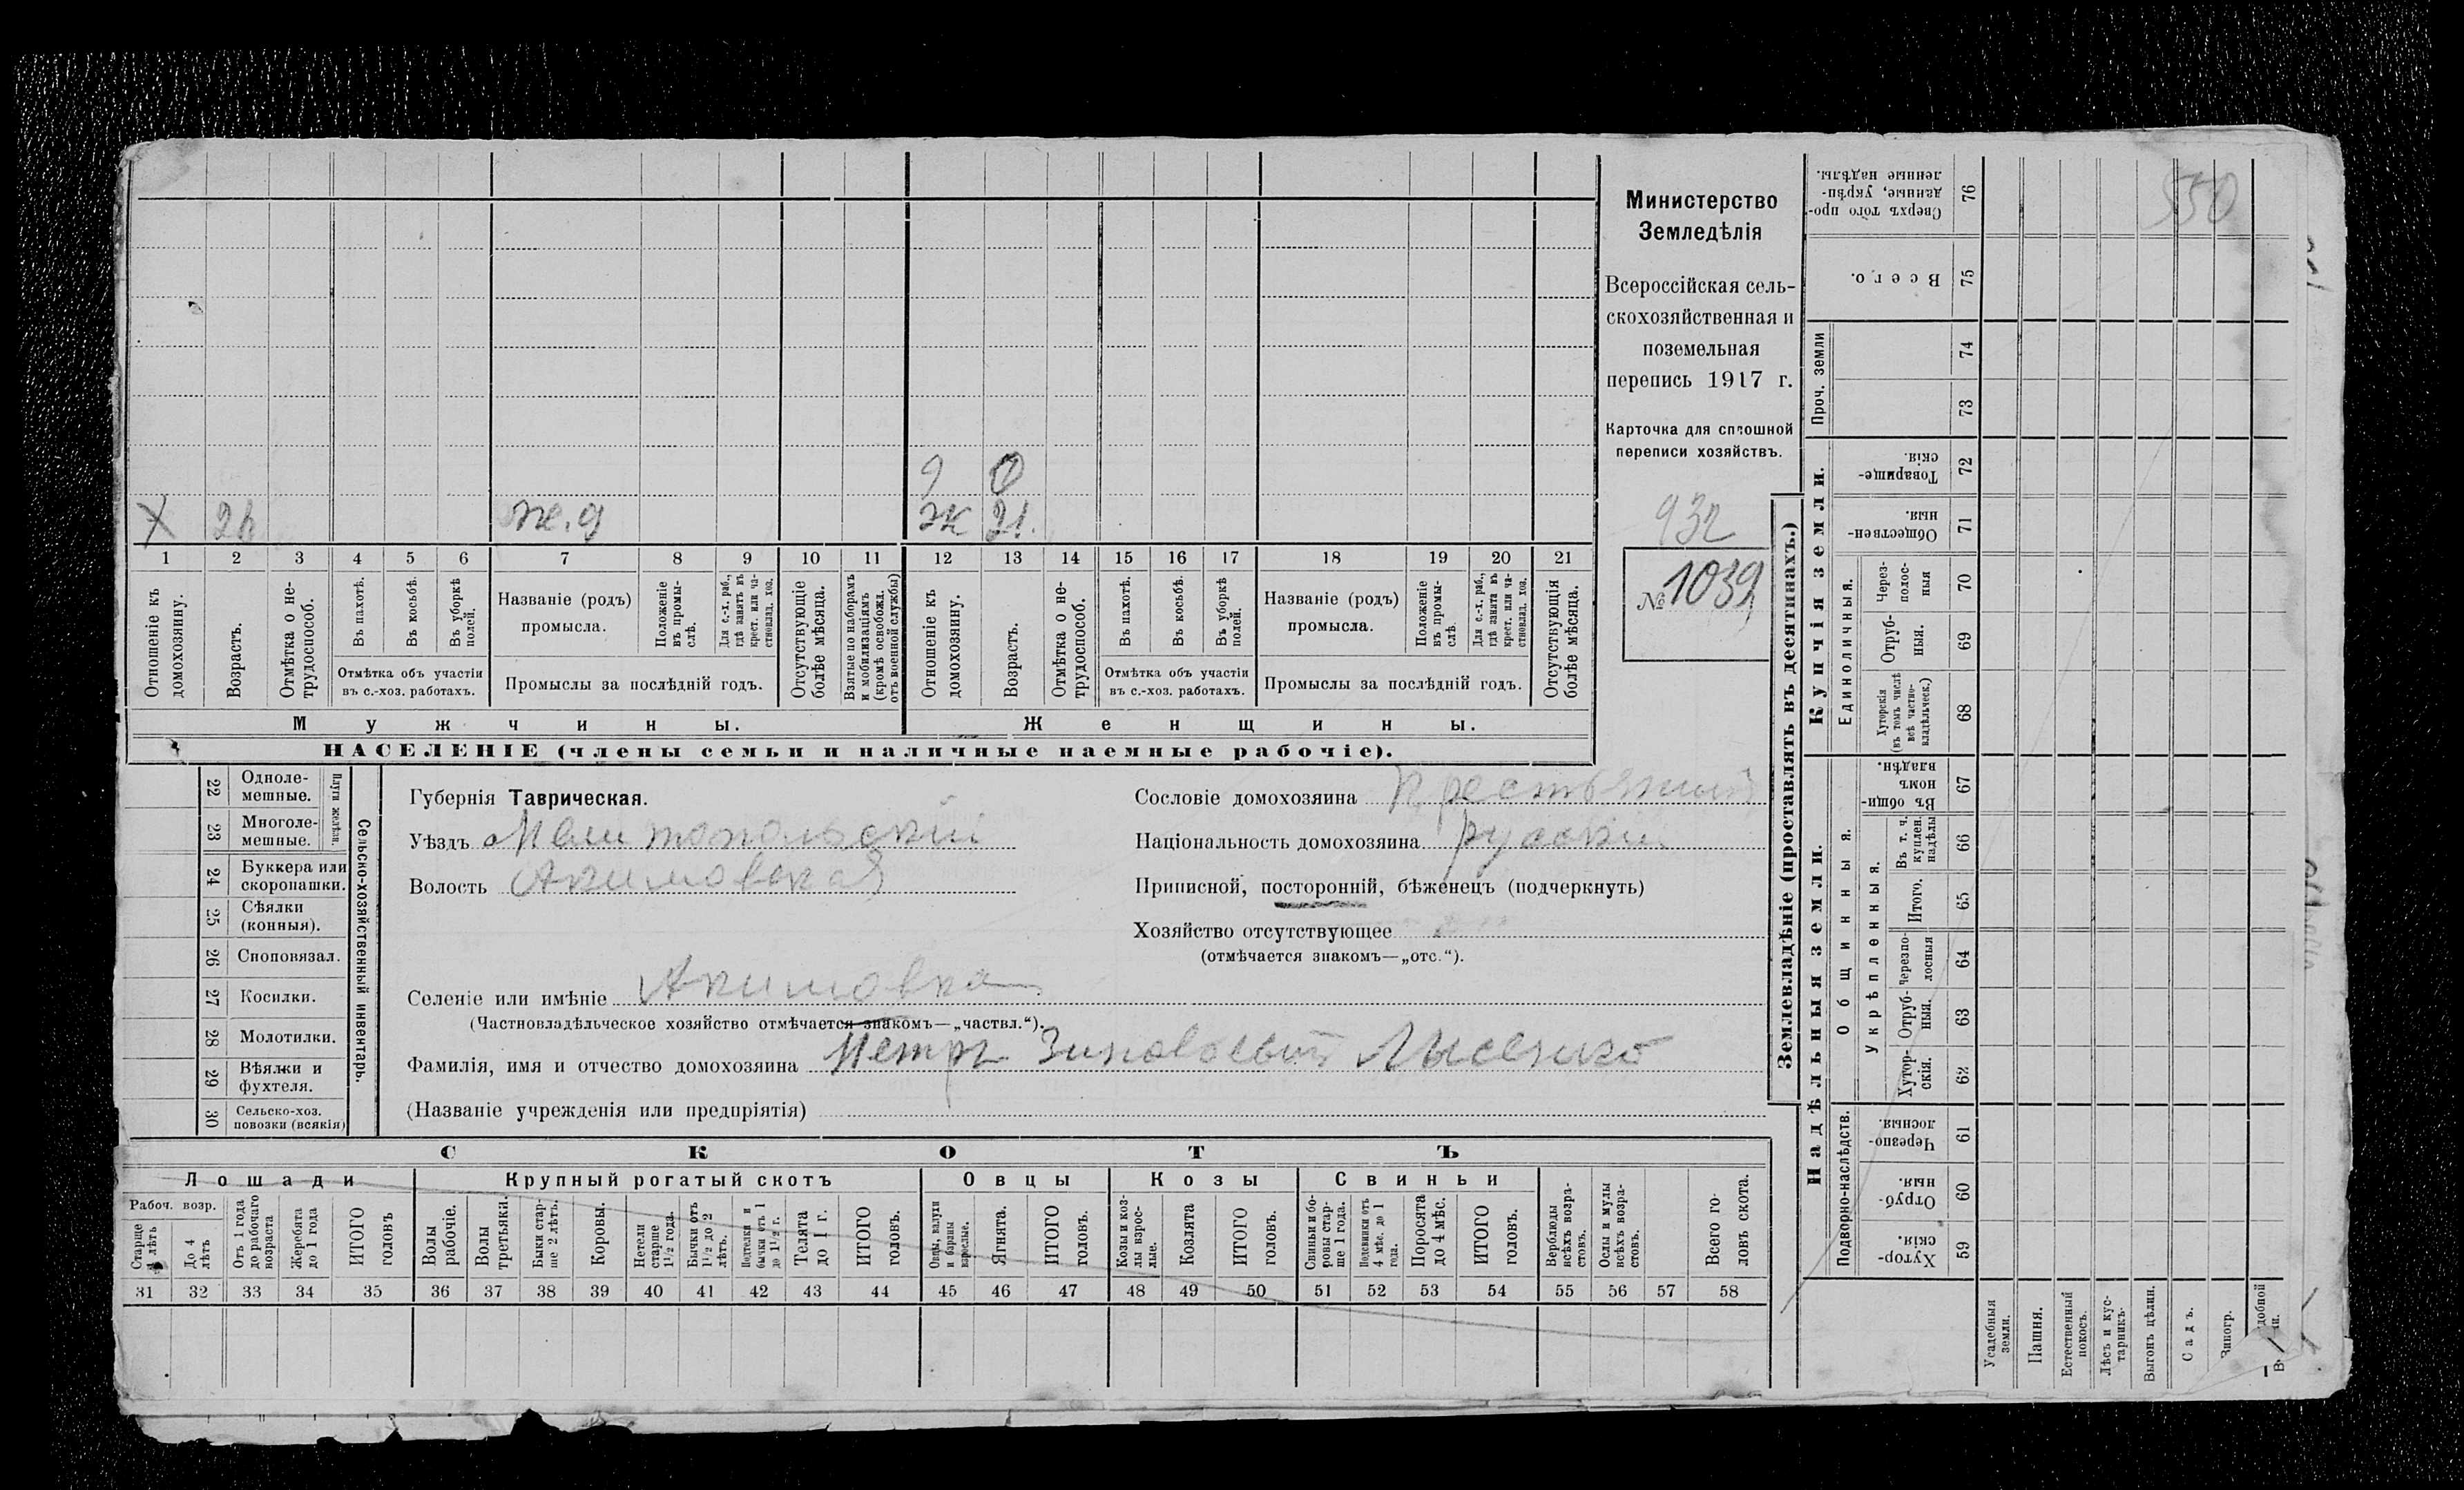 Министерство
Земледѣлія
Всероссійская сель-
скохозяйственная и
поземельная
перепись 1917 г.
Карточка для сплошной
переписи хозяйствъ.
932
№ 1039
550
9 0
х ж.д ж 21.
1 2 3 4 5 6 7 8 9 10 11 12 13 14 15 16 17 18 19 20 21
Отношеніе къ домохозяину.
Возрастъ.
Отмѣтка о не-трудоспособ.
Въ пахотѣ.
Въ косьбѣ.
Въ уборкѣ полей.
Отмѣтка объ участіи
въ с.-хоз. работахъ.
Названіе (родъ)
промысла.
Положеніе въ промы-слѣ.
Для с.-х. раб., гдѣ занятъ въ крест. или ча-стновлад. хоз.
Промыслы за послѣдній годъ.
Отсутствующіе болѣе мѣсяца.
Взятые по наборамъ и мобилизаціямъ (кромѣ освобожд. отъ военной службы)
Отношеніе къ домохозяину.
Возрастъ.
Отмѣтка о не-трудоспособ.
Въ пахотѣ.
Въ косьбѣ.
Въ уборкѣ полей.
Отмѣтка объ участіи
въ с.-хоз. работахъ.
Названіе (родъ)
промысла.
Положеніе въ промы-слѣ.
Для с.-х. раб., гдѣ занята въ крест. или ча-стновлад. хоз.
Промыслы за послѣдній годъ.
Отсутствующія болѣе мѣсяца.
Мужчины.
Женщины.
НАСЕЛЕНІЕ (члены семьи и наличные наемные рабочіе).
22 Одноле-мешные.
23 Многоле-мешные.
Плуги желѣзн.
24 Буккера или скоропашки.
25 Сѣялки (конныя).
26 Сноповязал.
27 Косилки.
28 Молотилки.
29 Вѣялки и фухтеля.
30 Сельско-хоз. повозки (всякія)
Сельско-хозяйственный инвентарь.
Губернія Таврическая.
Уѣздъ Мелитопольскій
Волость Акимовская
Сословіе домохозяина Крестьянинъ
Національность домохозяина русскій
Приписной, посторонній, бѣженецъ (подчеркнуть)
Хозяйство отсутствующее
(отмѣчается знакомъ—„отс.“).
Селеніе или имѣніе Акимовка
(Частновладѣльческое хозяйство отмѣчается знакомъ—„частвл.“).
Фамилія, имя и отчество домохозяина Петръ Зиновьевичъ Лысенко
(Названіе учрежденія или предпріятія)
СКОТЪ
Лошади
Крупный рогатый скотъ
Овцы
Козы
Свиньи
Рабоч. возр.
Старше 4 лѣтъ
До 4 лѣтъ
Отъ 1 года до рабочаго возраста
Жеребята до 1 года
ИТОГО головъ
Волы рабочіе.
Волы третьяки.
Быки стар-ше 2 лѣтъ.
Коровы.
Нетели старше 1½ года.
Бычки отъ 1½ до 2 лѣтъ.
Подтелки и бычки отъ 1 до 1½ г.
Телята до 1 г.
ИТОГО головъ.
Овцы, валухи и бараны взрослые.
Ягнята.
ИТОГО головъ.
Козы и коз-лы взрос-лые.
Козлята
ИТОГО головъ.
Свиньи и бо-ровы стар-ше 1 года.
Подсвинки отъ 4 мѣс. до 1 года.
Поросята до 4 мѣс.
ИТОГО головъ.
Верблюды всѣхъ возра-стовъ.
Ослы и мулы всѣхъ возра-стовъ.
Всего го-ловъ скота.
31 32 33 34 35 36 37 38 39 40 41 42 43 44 45 46 47 48 49 50 51 52 53 54 55 56 57 58
Землевладѣніе (проставлять въ десятинахъ.)
Купчія земли.
Надѣльныя земли.
Проч. земли
Единоличныя.
Общинныя.
Укрѣпленныя.
Подворно-наслѣдств.
Сверхъ того про-данные, укрѣп-ленные надѣлы. 76
Всего. 75
74
73
Товарище-скія. 72
Обществен-ныя. 71
Через-полос-ныя 70
Отруб-ныя. 69
Хуторскія (въ томъ числѣ всѣ частно-владѣльческ.) 68
Въ общи-номъ владѣн. 67
Въ т. ч. куплен. надѣлы 66
Итого. 65
Черезпо-лосныя 64
Отруб-ныя. 63
Хутор-скія. 62
Черезпо-лосныя. 61
Отруб-ныя. 60
Хутор-скія. 59
Усадебныя земли.
Пашня.
Естественный покосъ.
Лѣсъ и кус-тарникъ.
Выгонъ цѣлин.
Садъ.
Виногр.